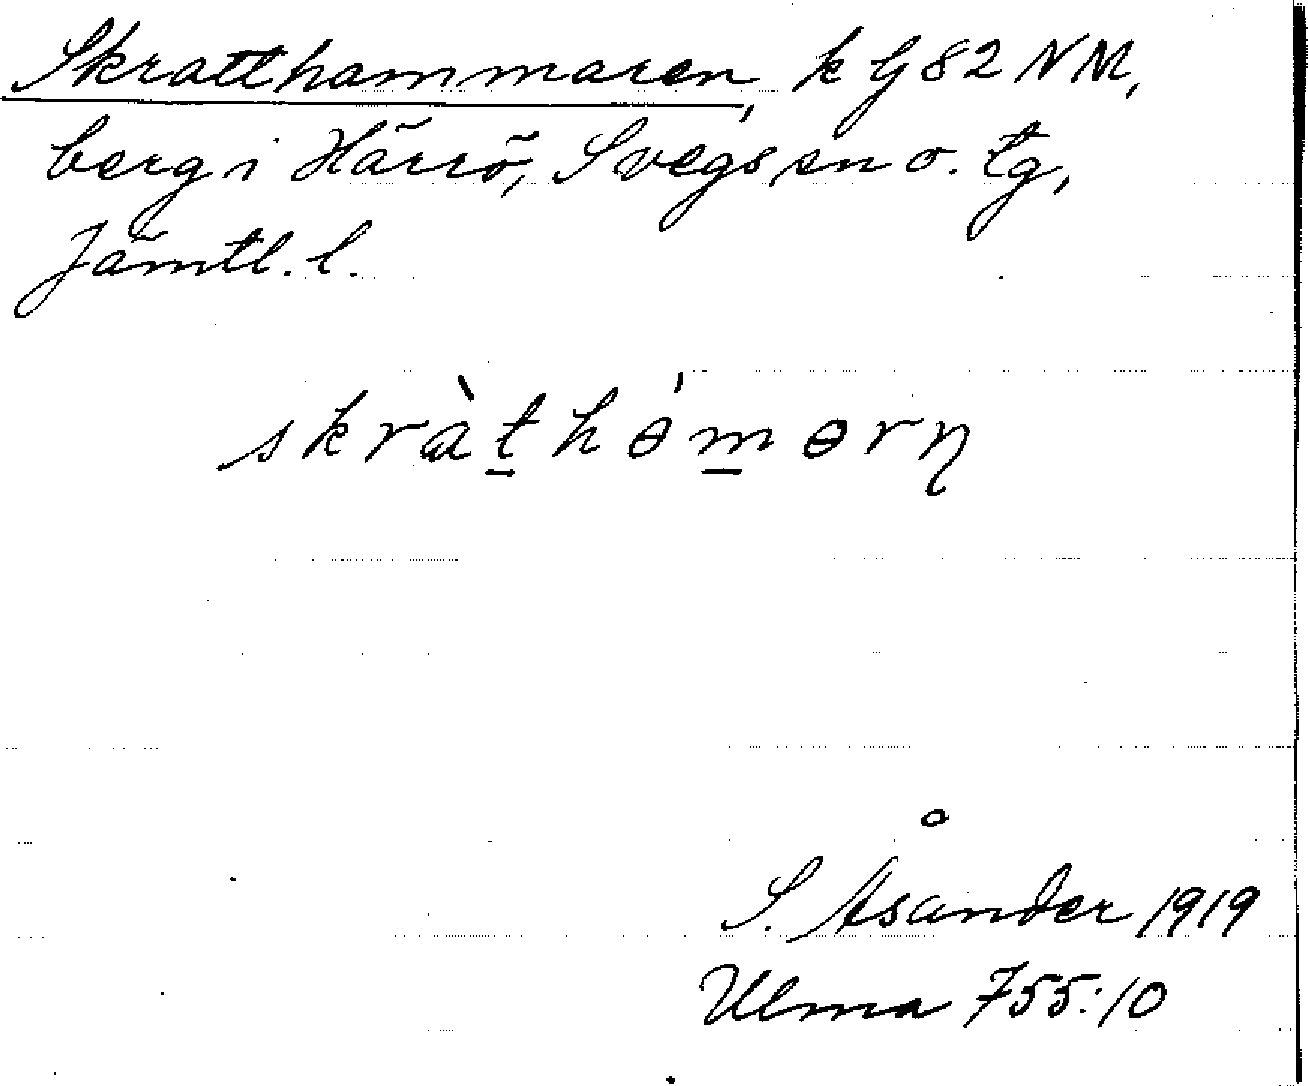 Skratthammaren, k G 82 NM,
berg i Härrö, Svegs sn o. tg,
Jämtl. l.
skràt̲hɵ́m̲ɵrn̥
S. Åsander 1919
Ulma 755:10